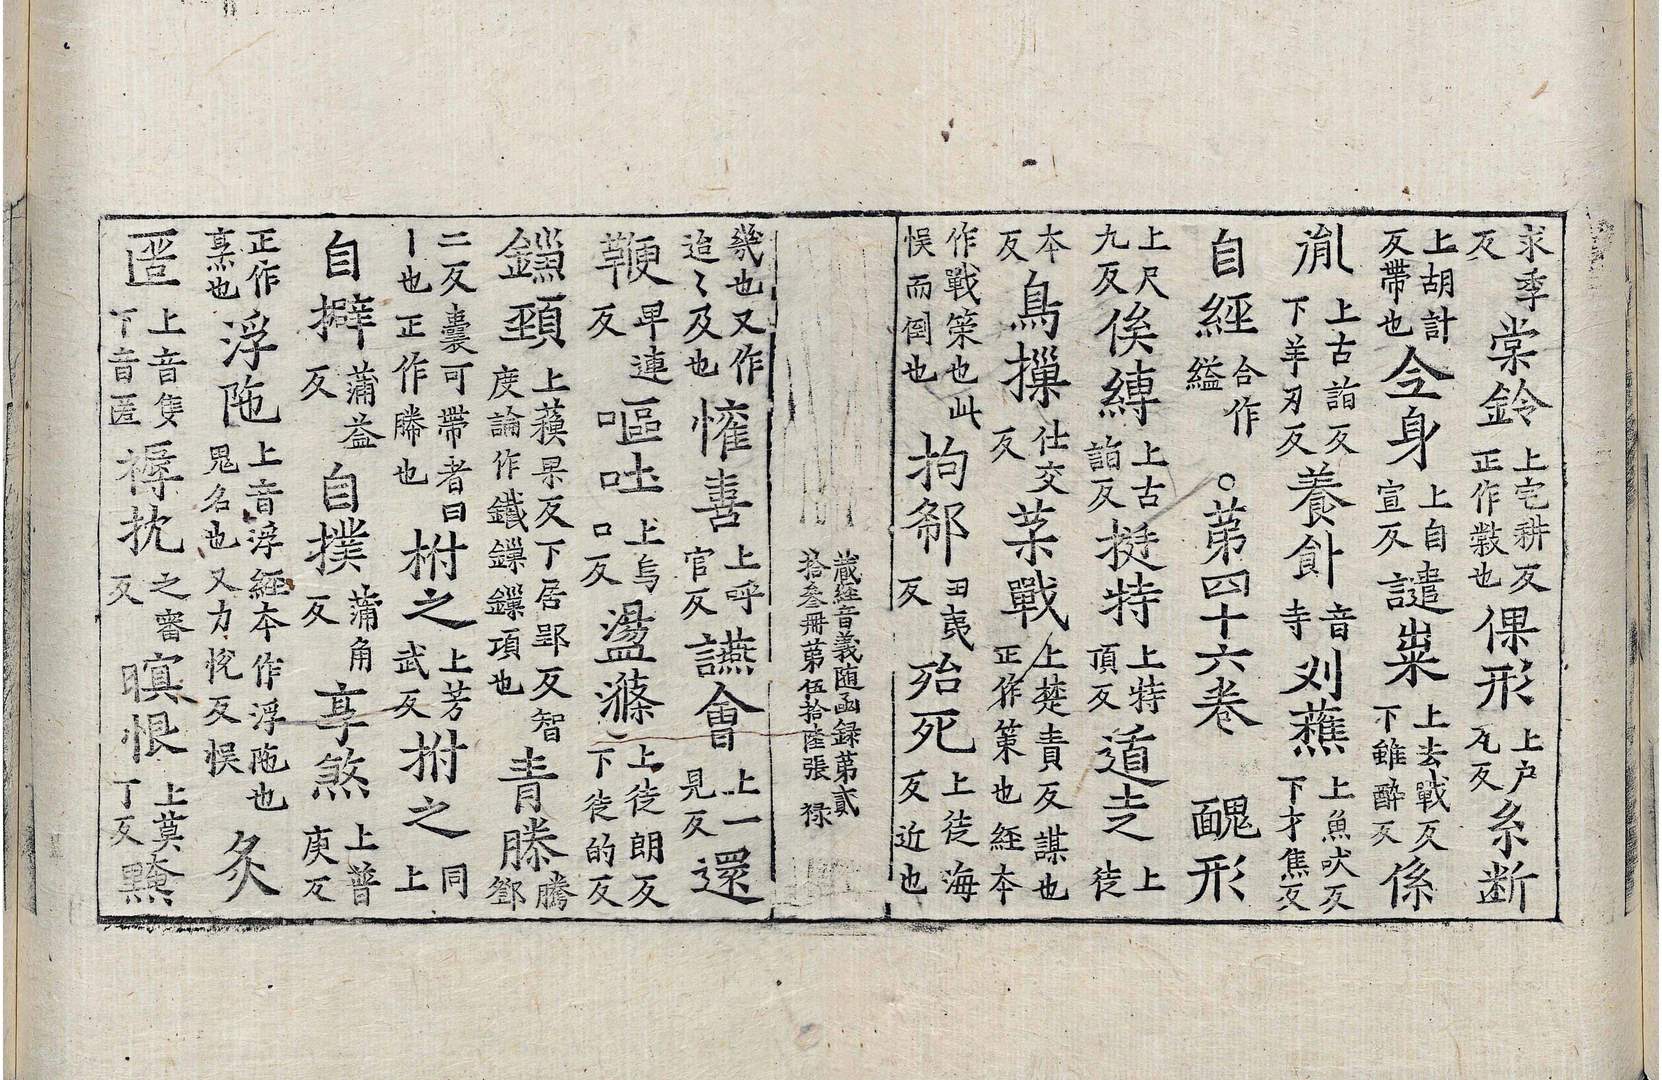 求季反 棠鈴 上宅耕反正作㲉也 倮形 上户瓦反 糸断
上胡計反帶也 令身 上自宣反 譴祟 上去戰反下雖醉反 係
胤 上古詣反下羊刃反 養飤 音寺 刈蕉 上魚吠反下才焦反
自經 合作縊 ○第四十六卷 醜形
上尺九反 俟縛 上古詣反 挺特 上特頂反 道𡉈 上徒
本反 鳥摷 仕交反 茦戰 上楚責反謀也正作策也經本
作戰筞也此悮而倒也 拘郗 丑夷反 殆死 上徒海反近也
藏經音義随函録第貳拾叄冊第伍拾陸張 禄
幾也又作迨〻及也 懽喜 上呼官反 讌會 上一見反 還
鞭 卑連反 嘔吐 上烏口反 盪滌 上徒朗反下徒的反
鏍頚 上蔝果反下居郢反智度論作鑯鏁鏁項也 青縢 騰鄧
二反囊可帶者曰丨也正作縢也 柎之 上芳武反 拊之 同上
自擗 蒲益反 自撲 蒲角反 享煞 上普庚反
正作烹也 浮陁 上音浮經本作浮陁也鬼名也又力恱反悮 炙
匿 上音隻下音匿 褥枕 之審反 瞑恨 上莫丁反 黤